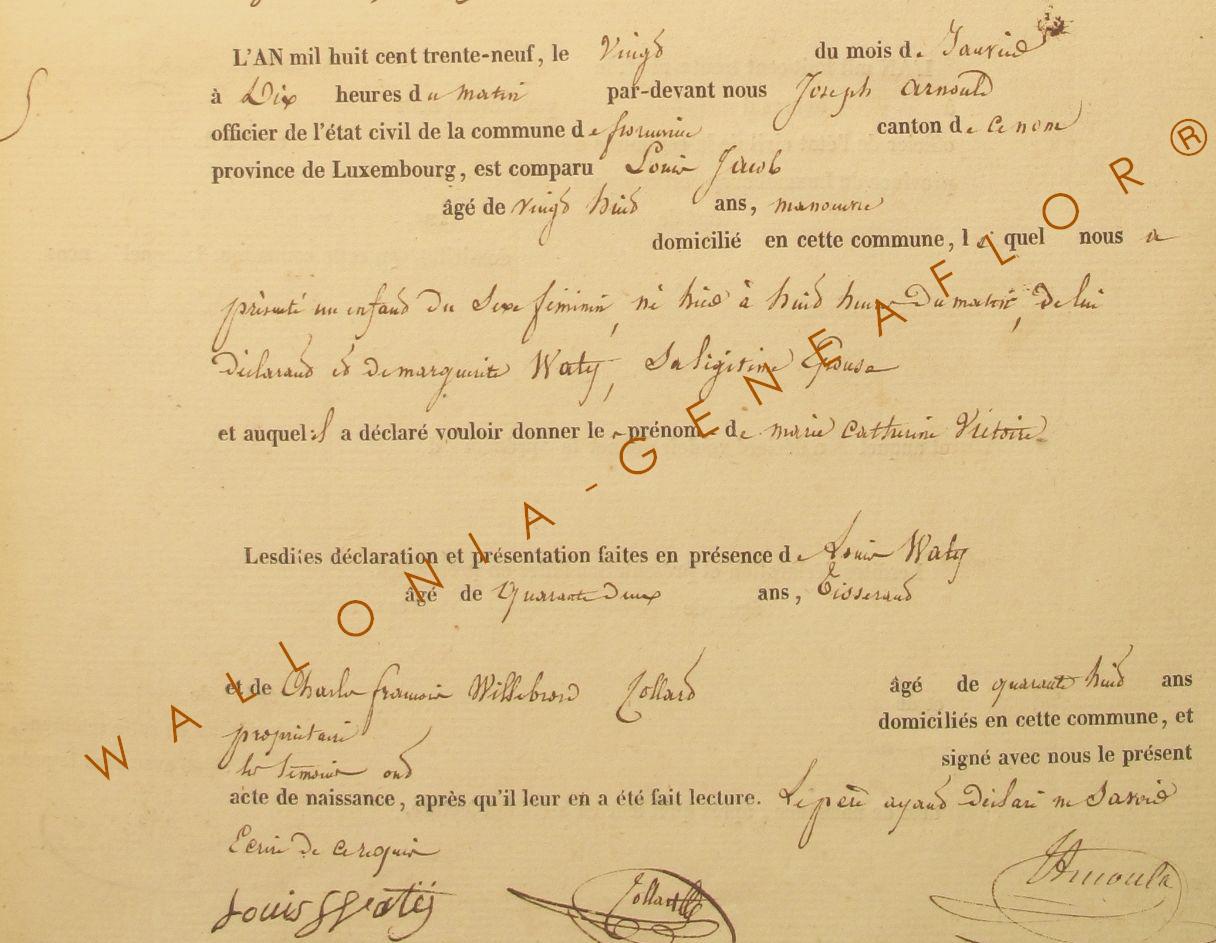 L'AN mil huit cent trente-neuf, le Vingt du mois de Janvier
à Dix heures du matin par-devant nous Joseph arnould
officier de l'état civil de la commune de canton de ce nom
province de Luxembourg, est comparu Louis Jacob
âgé de vingt huit ans, manouvrie
domicilié en cette commune, lequel nous a
présenté un enfant du Sexe féminin, né hier à huit heure Du matin, De lui
Déclarant et De marguerite Waty, Sa légitime Epouse
et auquel il a déclaré vouloir donner les prénoms de marie Catherine Victoire
Lesdites déclaration et présentation faites en présence de Louis Waty
âgé de Quarante Deux ans, Tisserand
et de Charles françois Willebrord Collard âgé de quarante huit ans
propriétaire domiciliés en cette commune, et
les témoins ont signé avec nous le présent
acte de naissance, après qu'il leur en a été fait lecture. Le père ayant Déclaré ne Savoir
Ecrire De ce requis
Louis Watÿ Collard Arnould
WALLONIA-GENEAFLOR®